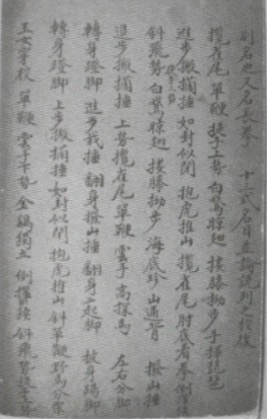 別名也又名長拳 十三式名目並論說列之於後
攬雀尾 單鞭 提手上勢 白鶩晾翅 摟膝拗步 手揮琵琶
進步搬攔捶 如封似閉 抱虎推山 攬雀尾 肘底看拳 倒
斜飛勢 白鶩晾翅 摟膝拗步 海底珍 山通背 撇山捶
退步搬攔捶 上勢攬雀尾 單鞭 雲手 高探馬 左右分脚
轉身蹬脚 進步栽捶 翻身撇山捶 翻身二起脚 披身踢脚
轉身蹬脚 上步搬攔捶 如封似閉 抱虎推山 斜單鞭 野馬分鬃
玉女穿梭 單鞭 雲手下勢 金鷄獨立 倒攆猴 斜飛勢 提手